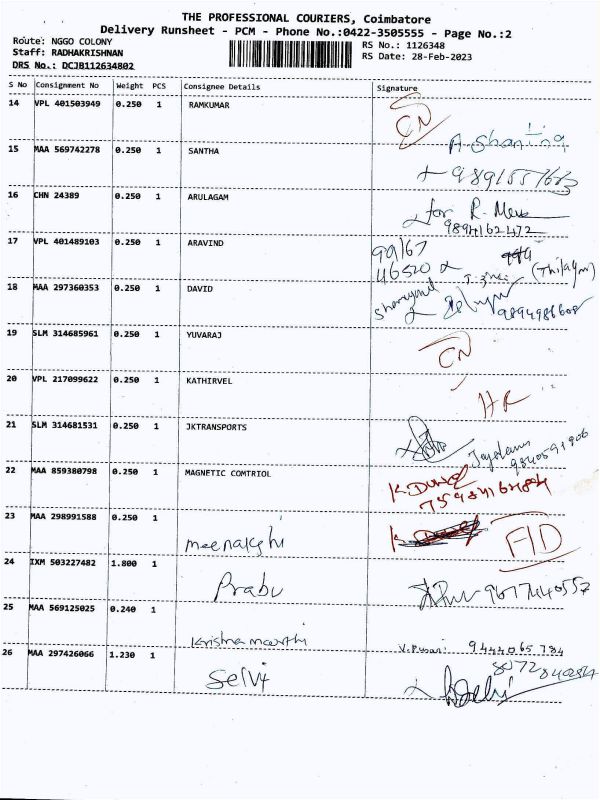 THE PROFESSIONAL COURIERS, Coimbatore
Delivery Runsheet - PCM - Phone No.:0422-3505555 - Page No.:2
Route: NGGO COLONY RS No.: 1126348
Staff: RADHAKRISHNAN RS Date: 28-Feb-2023
DRS No.: DCJB112634802
S No Consignment No Weight PCS Consignee Details Signature
14 VPL 401503949 0.250 1 RAMKUMAR CN
15 MAA 569742278 0.250 1 SANTHA
16 CHN 24389 0.250 1 ARULAGAM for R.
9894162472
17 VPL 401489103 0.250 1 ARAVIND 99167
46520
18 MAA 297360353 0.250 1 DAVID 9894986608
19 SLM 314685961 0.250 1 YUVARAJ CN
20 VPL 217099622 0.250 1 KATHIRVEL HR
21 SLM 314681531 0.250 1 JKTRANSPORTS
22 MAA 859380798 0.250 1 MAGNETIC COMTRIOL
23 MAA 298991588 0.250 1 meenakshi FID
24 IXM 503227482 1.800 1 Prabu 9617440557
25 MAA 569125025 0.240 1 Krishna moorthi 9444065784
26 MAA 297426066 1.230 1 Selvi